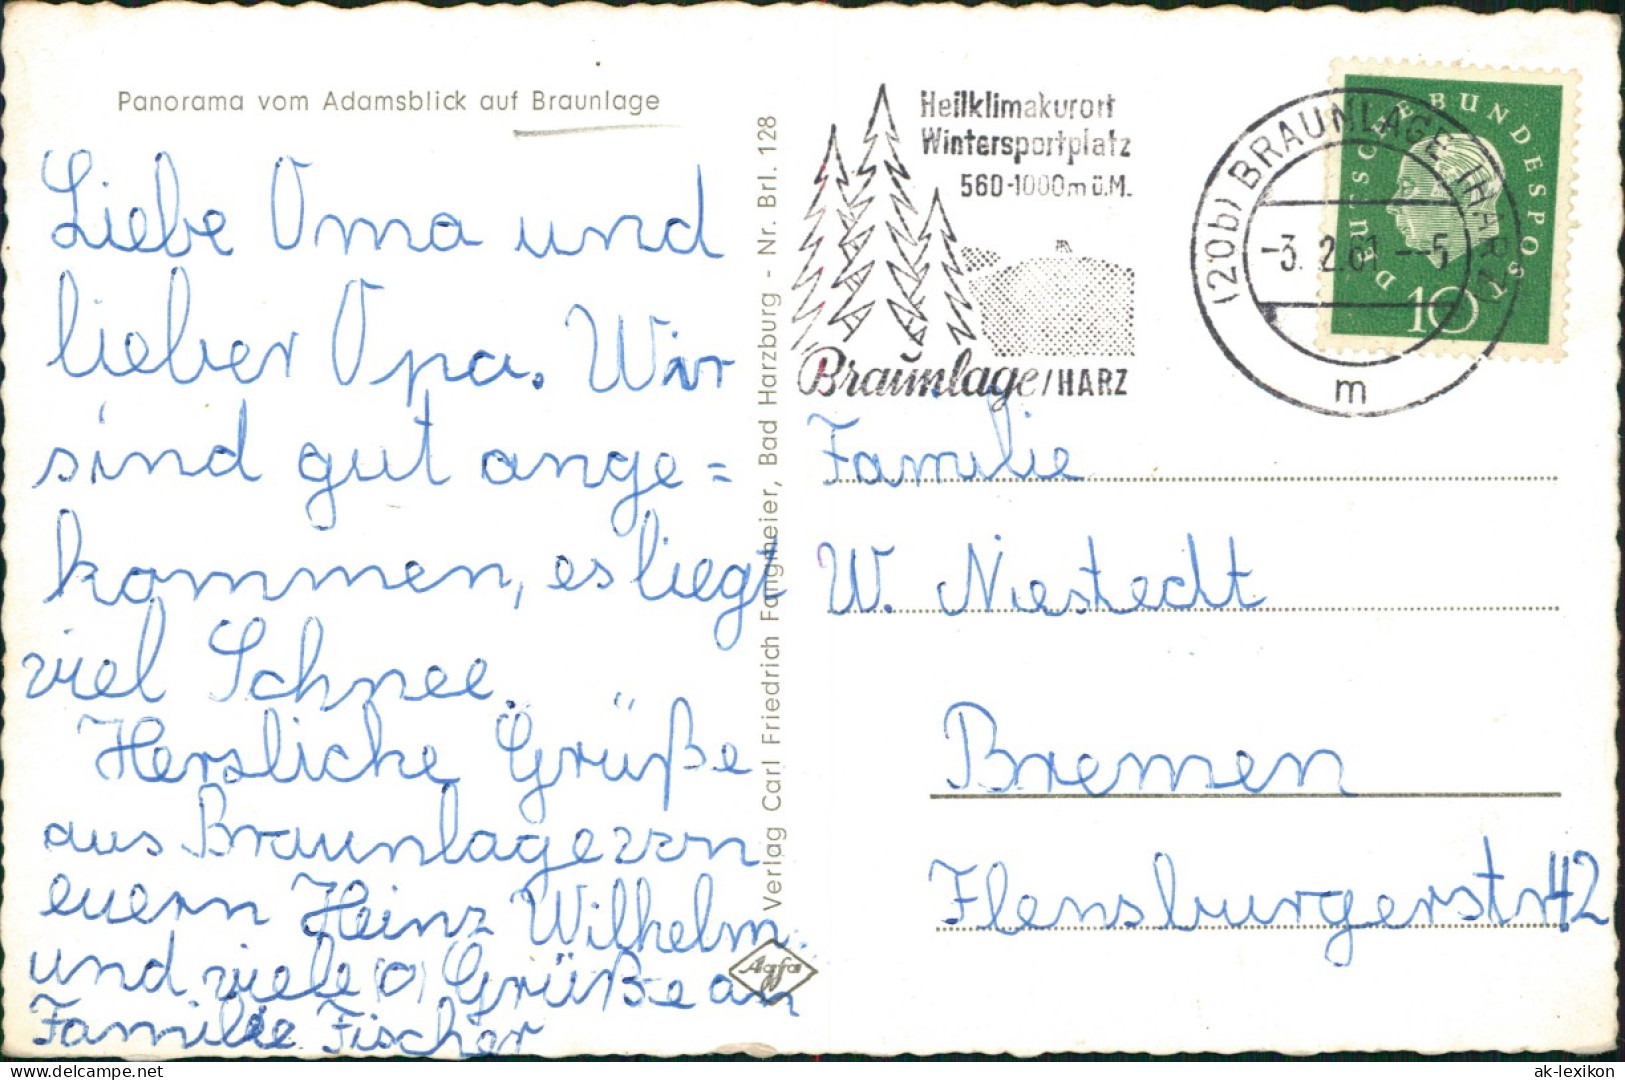 Panorama vom Adamsblick auf Braunlage
Liebe Oma und
lieber Opa. Wir
sind gut ange=
kommen, es liegt
viel Schnee.
Herzliche Grüße
aus Braunlage von
euern Heinz Wilhelm.
und viele (o) Grüße an
Familie Fischer
Verlag Carl Friedrich Fangmeier, Bad Harzburg - Nr. Brl. 128
Agfa
Heilklimakurort
Wintersportplatz
560-1000m ü.M.
Braunlage/HARZ
(20b) BRAUNLAGE (HARZ)
-3. 2.61 --5
m
DEUTSCHE BUNDESPOST
10
Familie
W. Niestedt
Bremen
Flensburgerstr 42
delcampe.net
ak-lexikon